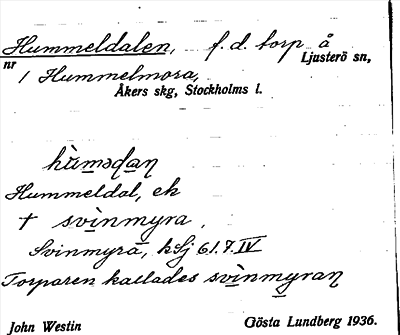 Hummeldalen, f. d. torp å
Ljusterö sn,
nr 1 Hummelmora,
Åkers skg, Stockholms l.
hùmədaɲ
Hummeldal, ek
† svinmyra.
Svinmyra, hSj 61.7.IV
Torparen kallades svinmyran
John Westin Gösta Lundberg 1936.